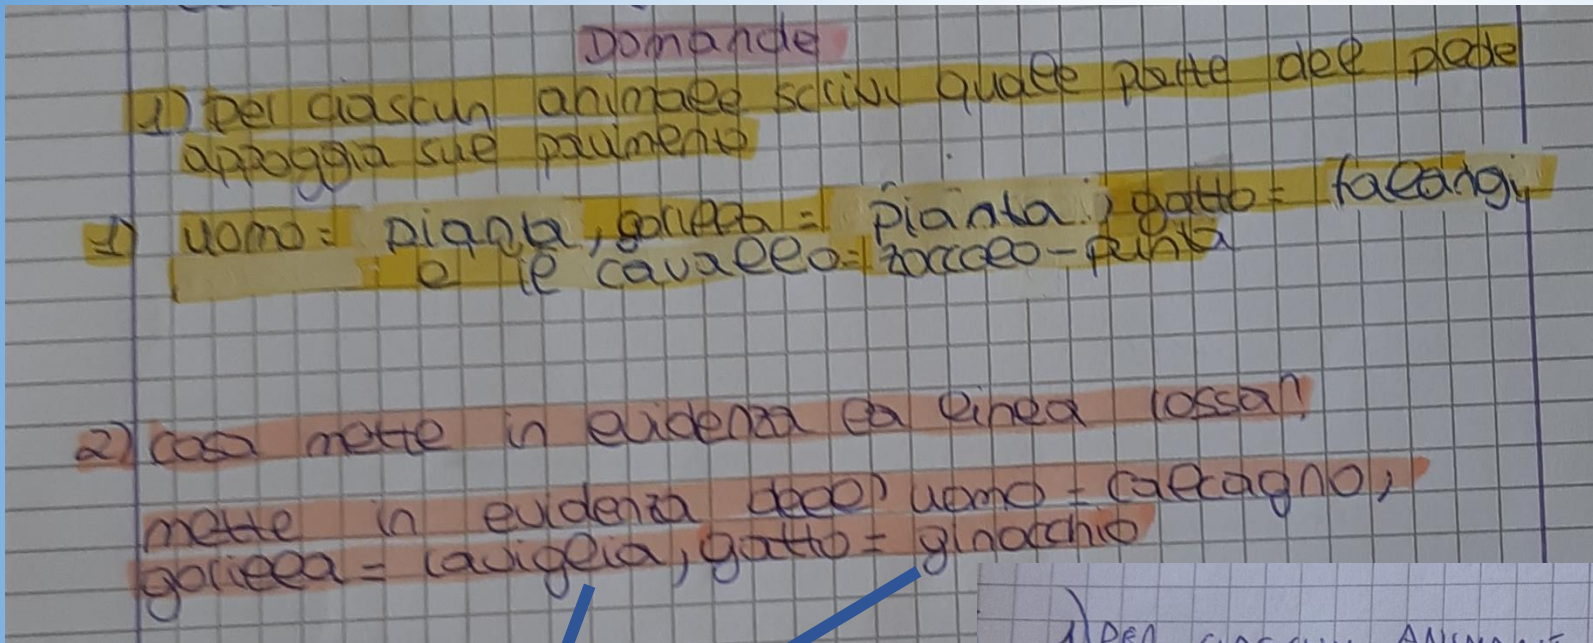 Domande
1) Per ciascun animale scrivi quale parte del piede
appoggia sul pavimento
1) uomo= pianta, gorilla= pianta, gatto= falangi
e il cavallo= zoccolo-punta
2) cosa mette in evidenza la linea rossa?
mette in evidenza dell'uomo= calcagno,
gorilla= caviglia, gatto= ginocchio
1) PER CIASCUN ANIMALE